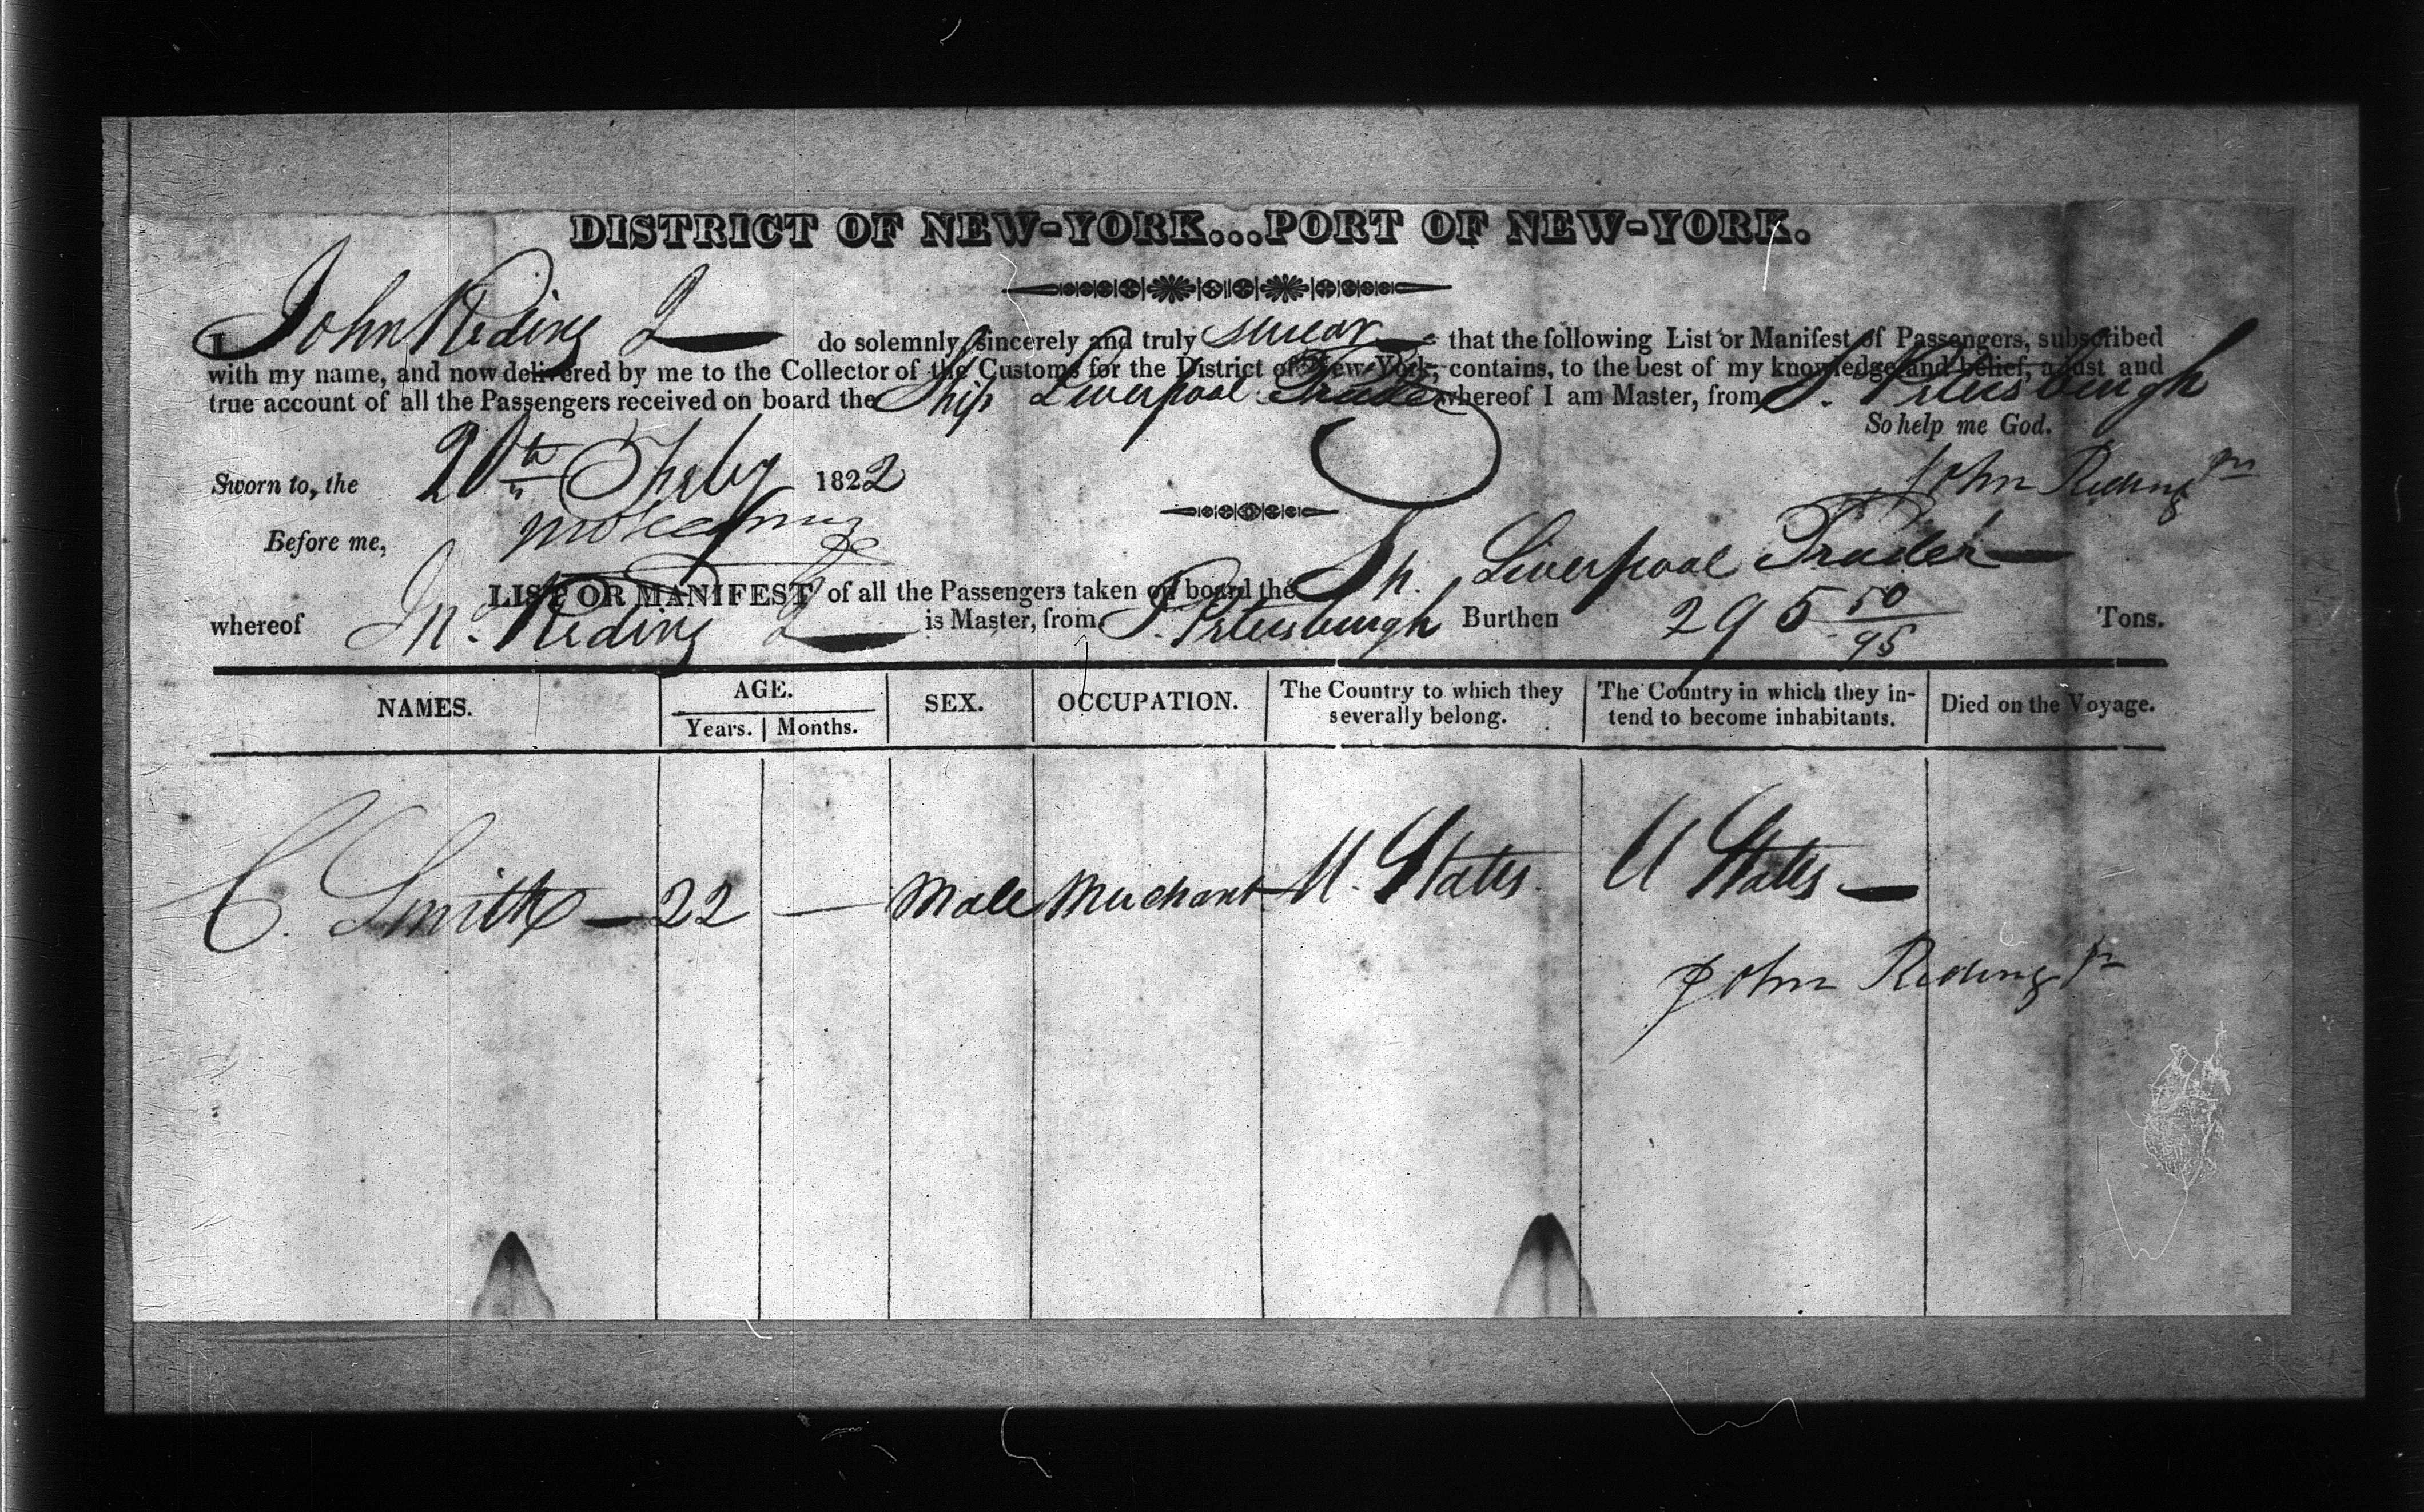 DISTRICT OF NEW-YORK...PORT OF NEW-YORK.
I John Reding 2 do solemnly, sincerely and truly swear that the following List or Manifest of Passengers, subscribed
with my name, and now delivered by me to the Collector of the Customs for the District of New-York, contains, to the best of my knowledge and belief, a just and
true account of all the Passengers received on board the Ship Liverpool Trader whereof I am Master, from S. Petersburgh
So help me God.
Sworn to, the 20th Feby 1822 John Reding
Before me,
LIST OR MANIFEST of all the Passengers taken on board the Sh. Liverpool Trader
whereof Jno. Reding 2 is Master, from S. Petersburgh Burthen 295 50/95 Tons.
NAMES. AGE. SEX. OCCUPATION. The Country to which they severally belong. The Country in which they intend to become inhabitants. Died on the Voyage.
Years. Months.
C. Smith — 22 — Male Merchant U. States. U States —
John Reding